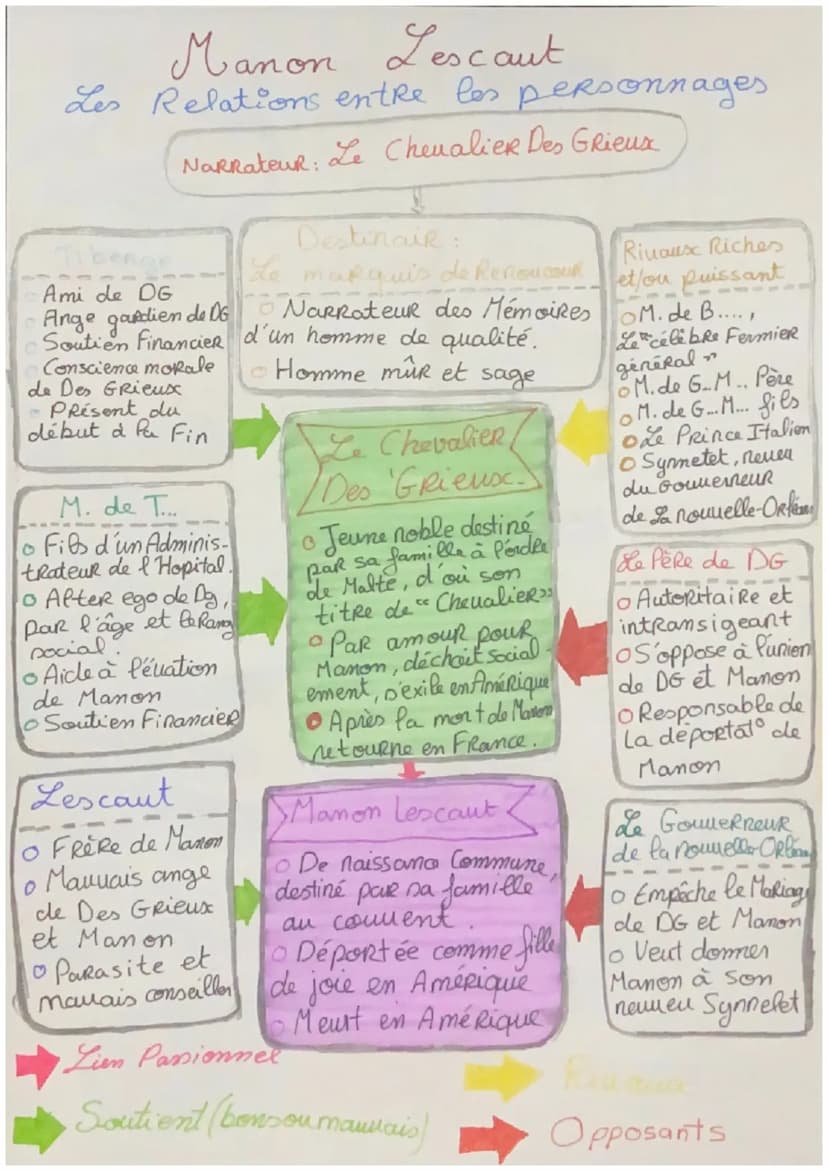 Manon Lescaut
Les Relations entre les personnages
Narrateur : Le Chevalier Des Grieux
Tiberge
Ami de DG
Ange gardien de DG
Soutien Financier
Conscience morale
de Des Grieux
Présent du
début à la Fin
Destinair :
Le marquis de Renoncour
Narrateur des Mémoires
d'un homme de qualité.
Homme mûr et sage
Rivaux Riches
et/ou puissant
M. de B....,
Le "célèbre Fermier
général"
M. de G..M.. Père
M. de G...M... fils
Le Prince Italien
Synnetet, neveu
du Gouverneur
de La nouvelle-Orléans
M. de T...
Fils d'un Adminis-
trateur de l'Hopital.
Alter ego de Dg,
par l'âge et le Rang
social.
Aide à l'évation
de Manon
Soutien Financier
Le Chevalier
Des Grieux.
Jeune noble destiné
par sa famille à l'ordre
de Malte, d'où son
titre de "Chevalier"
Par amour pour
Manon, déchoit social-
ement, s'exile en Amérique
Après la mort de Manon
retourne en France.
Le Père de DG
Autoritaire et
intransigeant
S'oppose à l'union
de DG et Manon
Responsable de
la déportat° de
Manon
Lescaut
Frère de Manon
Mauvais ange
de Des Grieux
et Manon
Parasite et
mauvais conseiller
Manon Lescaut
De naissance Commune,
destiné par sa famille
au couvent.
Déportée comme fille
de joie en Amérique
Meurt en Amérique
Le Gouverneur
de la nouvelle-Orléans
Empêche le Mariage
de DG et Manon
Veut donner
Manon à son
neuveu Synnelet
Lien Passionnel
Rivaux
Soutient (bons ou mauvais)
Opposants